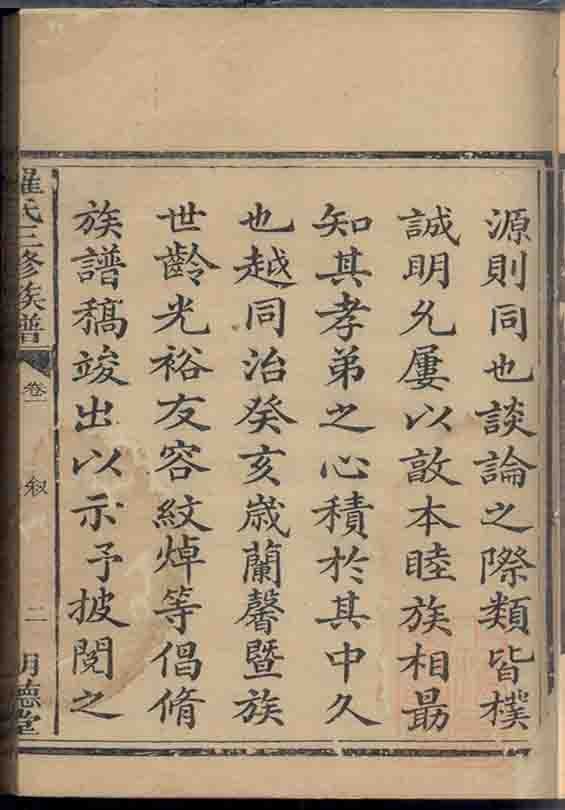 源則同也談論之際類皆樸
誠明允屢以敦本睦族相勗
知其孝弟之心積於其中久
也越同治癸亥歲蘭馨暨族
世齡光裕友容紋焯等倡脩
族譜稿竣出以示予披閱之
羅氏三修族譜
卷一
叙
二
明德堂